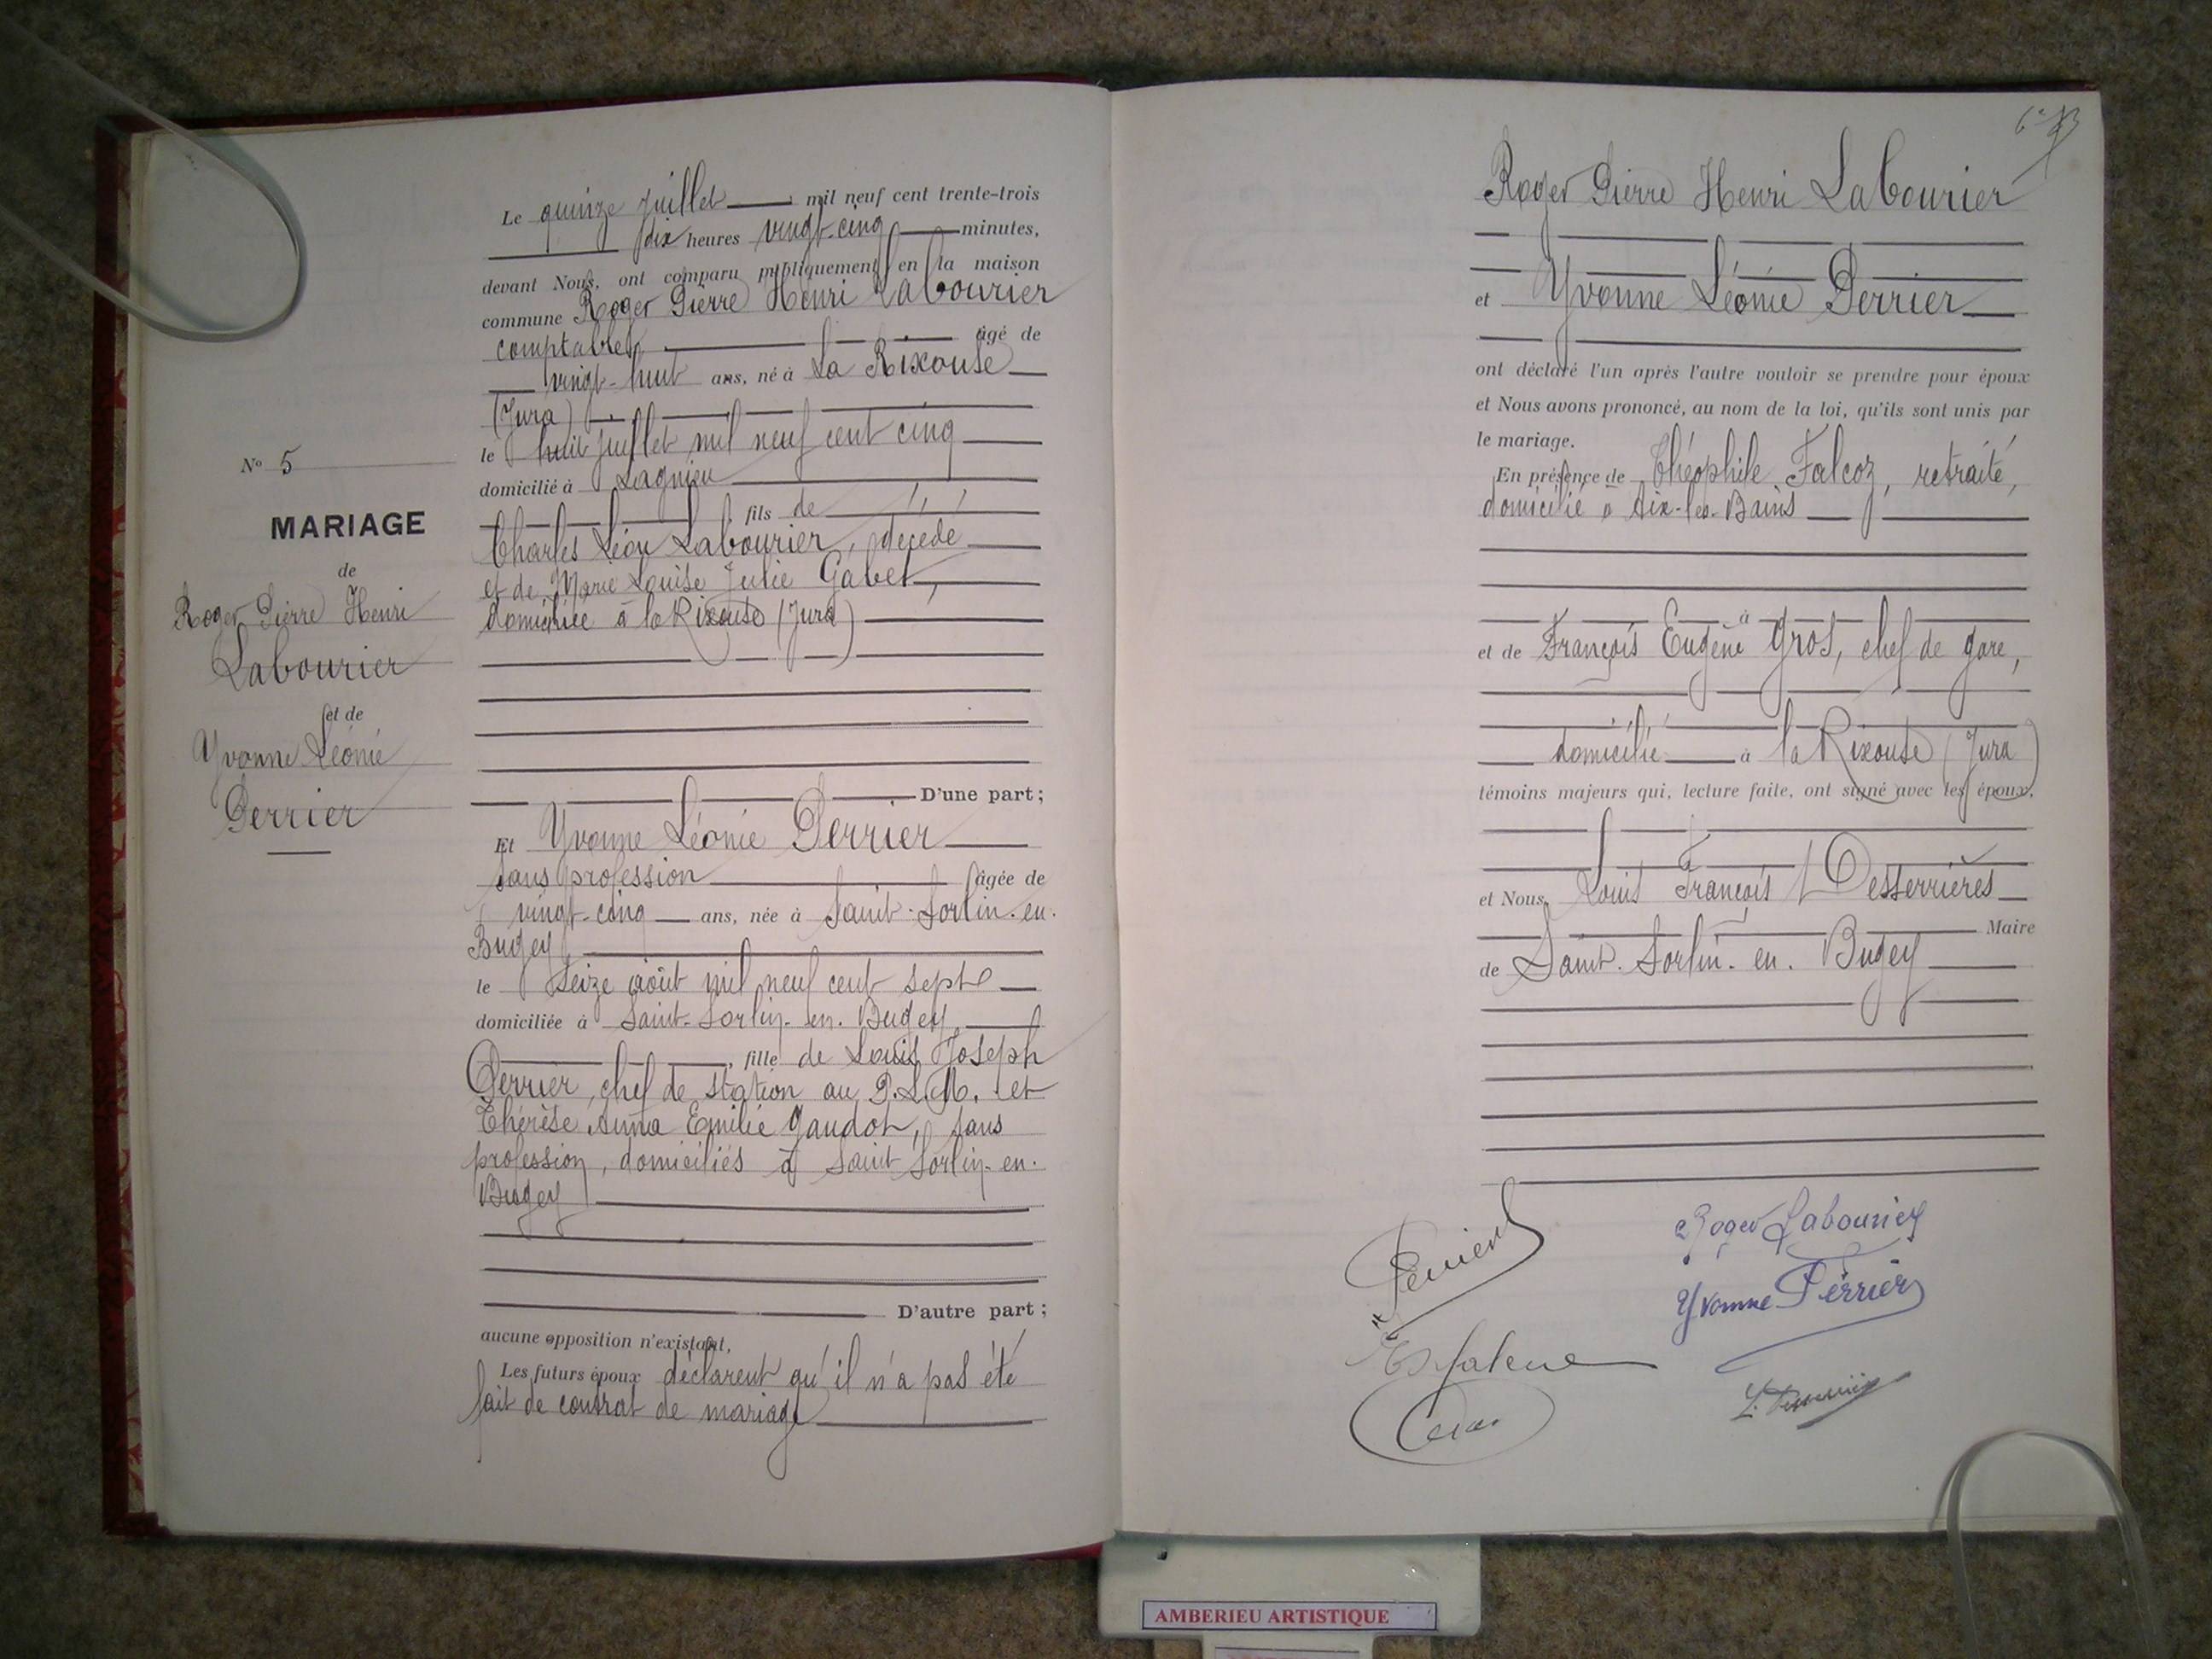 N° 5
MARIAGE
de
Roger Pierre Henri
Labourier
et de
Yvonne Léonie
Perrier
Le quinze juillet mil neuf cent trente-trois
dix heures vingt-cinq minutes,
devant Nous, ont comparu publiquement en la maison
commune Roger Pierre Henri Labourier
comptable, âgé de
vingt-huit ans, né à La Rixouse
(Jura)
le huit juillet mil neuf cent cinq
domicilié à Lagnieu
, fils de
Charles Léon Labourier, décédé
et de Marie Louise Julie Gabet,
domiciliée à la Rixouse (Jura)
D'une part;
Et Yvonne Léonie Perrier
sans profession âgée de
vingt-cinq ans, née à Saint-Sorlin-en-
Bugey
le seize août mil neuf cent sept
domiciliée à Saint-Sorlin-en-Bugey
, fille de Louis Joseph
Perrier, chef de station au P.L.M. et
Thérèse Anna Emilie Gaudot, sans
profession, domiciliés à Saint Sorlin-en-
Bugey
D'autre part;
aucune opposition n'existant,
Les futurs époux déclarent qu'il n'a pas été
fait de contrat de mariage
Roger Pierre Henri Labourier
et Yvonne Léonie Perrier
ont déclaré l'un après l'autre vouloir se prendre pour époux
et Nous avons prononcé, au nom de la loi, qu'ils sont unis par
le mariage.
En présence de Théophile Falcoz, retraité,
domicilié à Aix-les-Bains
à
et de François Eugène Gros, chef de gare,
domicilié à la Rixouse (Jura)
témoins majeurs qui, lecture faite, ont signé avec les époux,
et Nous, Louis François Desserrières
Maire
de Saint-Sorlin-en-Bugey
Perrier
Roger Labourier
Yvonne Perrier
AMBERIEU ARTISTIQUE